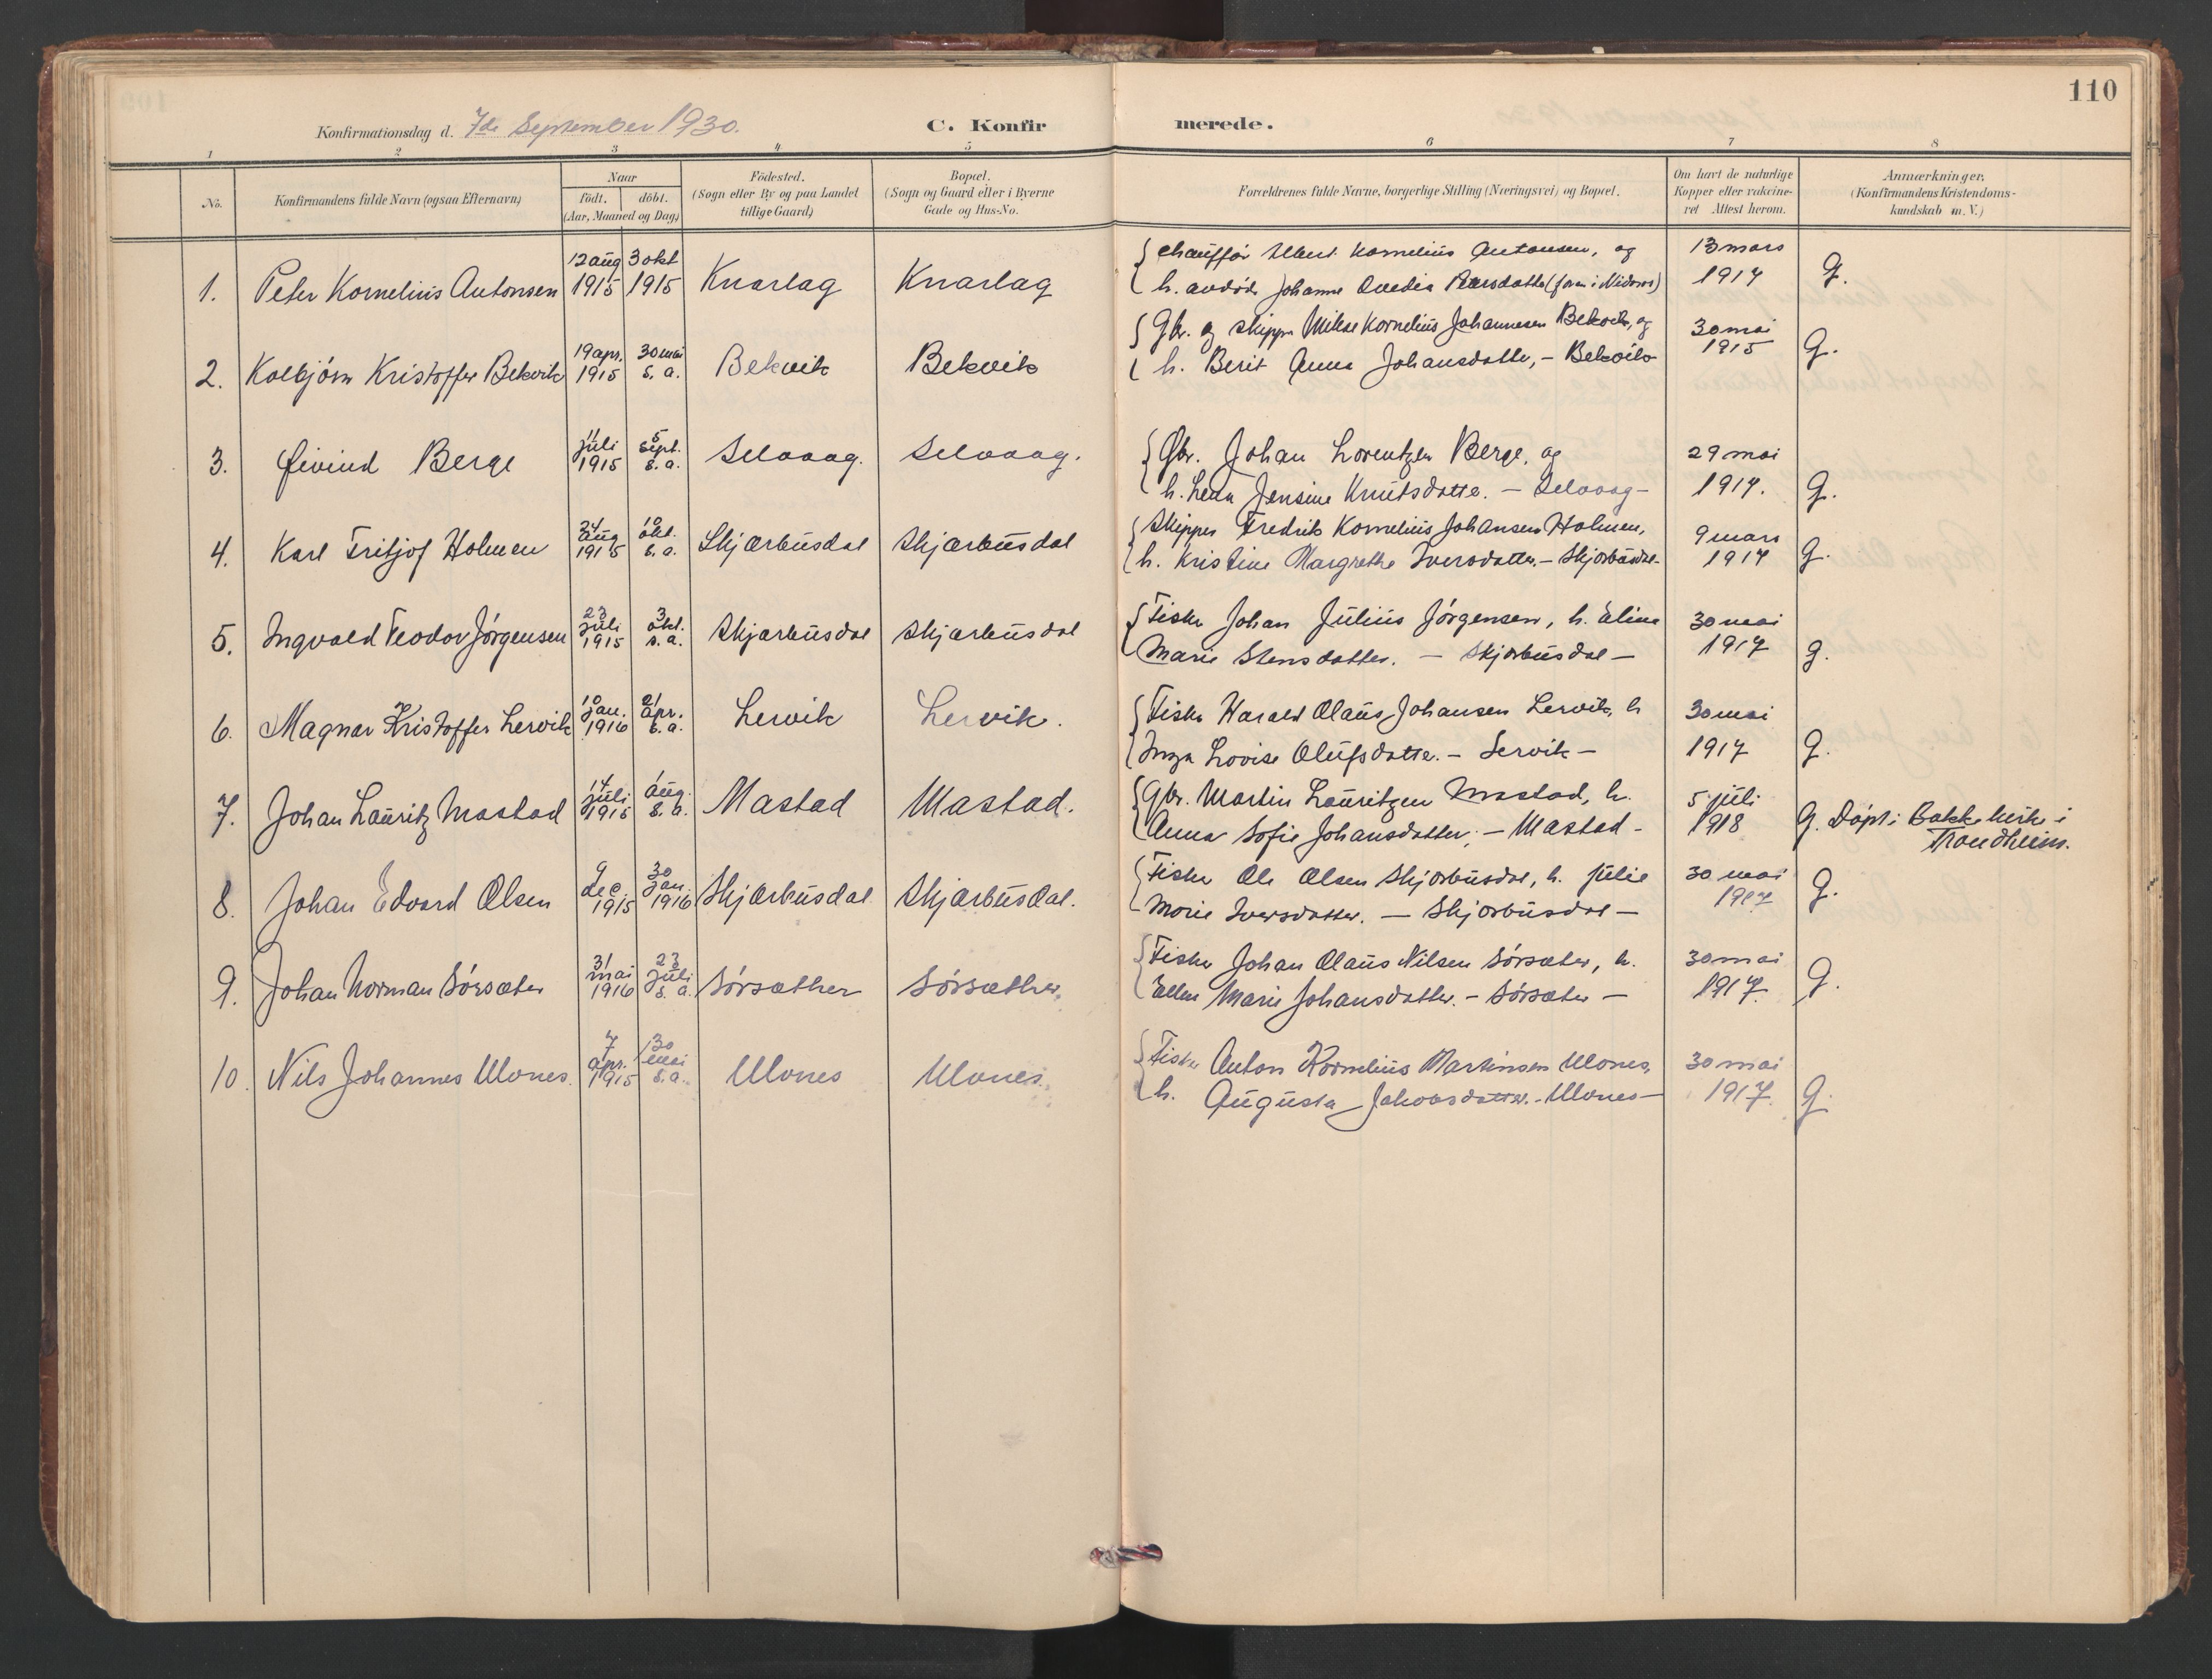 110
Konfirmationsdag d. 7de September 1930.
C. Konfirmerede.
1 2 3 4 5 6 7 8
No.
Konfirmandens fulde Navn (ogsaa Efternavn)
Naar
födt. döbt.
(Aar, Maaned og Dag)
Födested.
(Sogn eller By og paa Landet
tillige Gaard)
Bopæl.
(Sogn og Gaard eller i Byerne
Gade og Hus-No.
Forældrenes fulde Navne, borgerlige Stilling (Næringsvei) og Bopæl.
Om havt de naturlige
Kopper eller vakcine-
ret Attest herom.
Anmærkninger.
(Konfirmandens Kristendoms-
kundskab m. V.)
1. Peter Kornelius Antonsen 12 aug 1915 3 okt 1915 Knarlag Knarlag
Chauffør Albert Kornelius Antonsen, og
h. avdøde Johanne (faren i Nidaros)
13 mars 1917 G.
2. Kolbjørn Kristoffer Bekvik 19 apr. 1915 30 mai s. a. Bekvik Bekvik
Gbr. og skipper Mikal Kornelius Johannesen Bekvik, og
h. Berit Anna Johansdatter, - Bekvik
30 mai 1915 G.
3. Øivind Berge 11 juli 1915 5 sept. s. a. Selvaag. Selvaag.
Gbr. Johan Lorentzen Berge, og
h. Lena Jensine Knutsdatter. - Selvaag -
29 mai 1917. G.
4. Karl Fritjof Holmen 24 aug 1915 10 okt. s. a. Skjærbusdal Skjærbusdal
Skipper Fredrik Kornelius Johansen Holmen,
h. Kristine Margrethe Iversdatter. - Skjærbusdal -
9 mars 1917 G.
5. Ingvald Teodor Jørgensen 23 juli 1915 3 okt. s. a. Skjærbusdal Skjærbusdal
Fisker Johan Julius Jørgensen, h. Eline
Marie Stensdatter. - Skjærbusdal -
30 mai 1917 G.
6. Magnar Kristoffer Lervik 10 jan. 1916 21 apr. s. a. Lervik Lervik.
Fisker Harald Olaus Johansen Lervik, h
Inga Lovise Olufsdatter. - Lervik -
30 mai 1917 G.
7. Johan Lauritz Mastad 14 juli 1915 1 aug. s. a. Mastad Mastad.
Gbr. Martin Lauritzen Mastad, h.
Anna Sofie Johansdatter, - Mastad -
5 juli 1918 G. Døpt i Bakke kirke i
Trondheim.
8. Johan Edvard Olsen 9 dec 1915 30 jan. 1916 Skjærbusdal Skjærbusdal.
Fisker Ole Olsen Skjærbusdal, h. Julie
Marie Iversdatter. - Skjærbusdal -
30 mai 1917 G.
9. Johan Norman Sørsæter 31 mai 1916 23 juli s. a. Sørsæther Sørsæther,
Fisker Johan Olaus Nilsen Sørsæter, h.
Ellen Marie Johansdatter. - Sørsæter -
30 mai 1917. G.
10. Nils Johannes Ulvnes. 7 apr. 1915 30 mai s. a. Ulvnes Ulvnes.
Fisker Anton Kornelius Martinsen Ulvnes,
h. Augusta Jakobsdatter. - Ulvnes -
30 mai 1917. G.